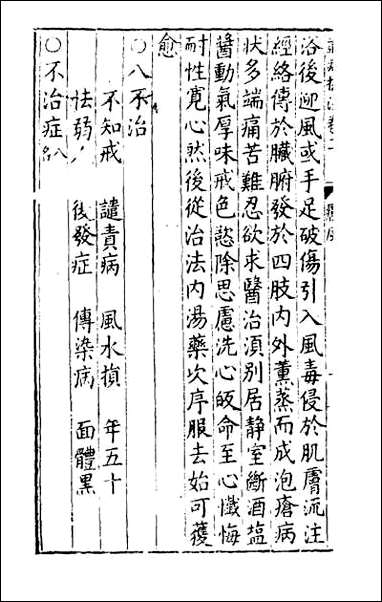 浴後迎風或手足破傷引入風毒侵於肌膚流注
經絡傳於臟腑發於四肢内外薰蒸而成泡瘡病
狀多端痛苦難忍欲求醫治須別居静室斷酒塩
醬動氣厚味戒色慾除思慮洗心皈命至心懺悔
耐性寬心然後從治法内湯藥次序服去始可獲
愈
○八不治
不知戒　譴責病　風水損　年五十
怯弱人　後發症　傳染病　面體黑
○不治症